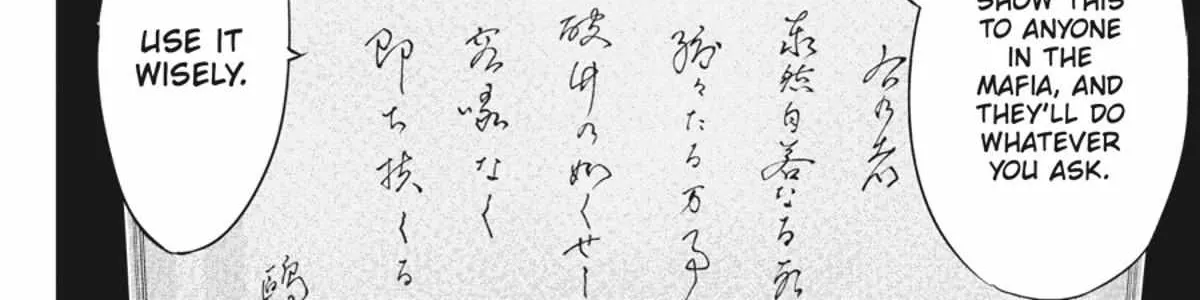 SHOW THIS
TO ANYONE
IN THE
MAFIA, AND
THEY'LL DO
WHATEVER
YOU ASK.
右乃者
泰然自若なる
々たる万事
破竹乃如くせし
容喙なく
即ち扶くる
鷗
USE IT
WISELY.